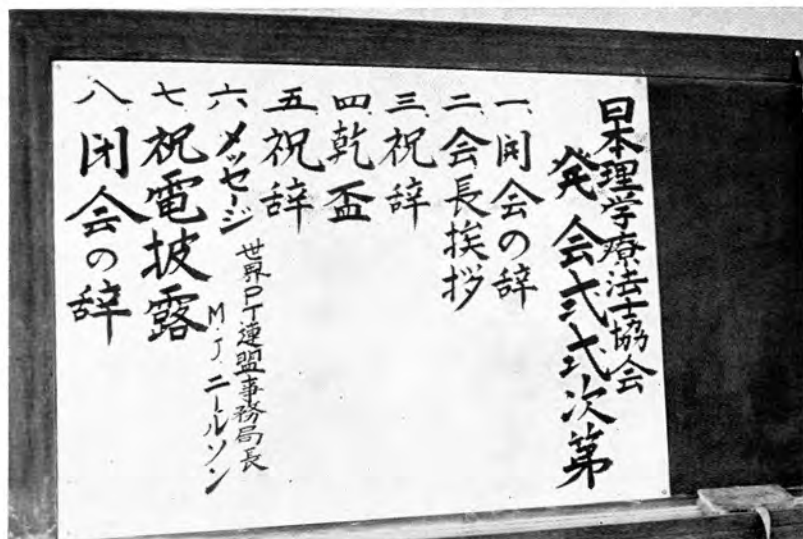 日本理学療法士協会
発会式式次第
一 開会の辞
二 会長挨拶
三 祝辞
四 乾盃
五 祝辞
六 メッセージ
世界PT連盟事務局長
M.J.ニールソン
七 祝電披露
八 閉会の辞